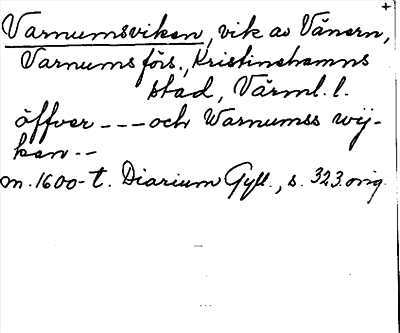 +
Varnumsviken, vik av Vänern,
Varnums förs., Kristinehamns
stad, Värml. l.
öffver --- och Warnumss wij-
ken --
m. 1600-t. Diarium Gyll., s. 323. orig.